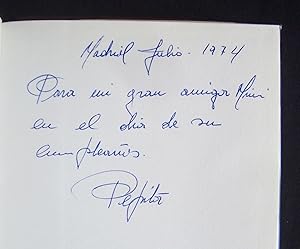 Madrid Julio - 1974
Para mi gran amigo Mini
en el día de su
cumpleaños.
Pepito